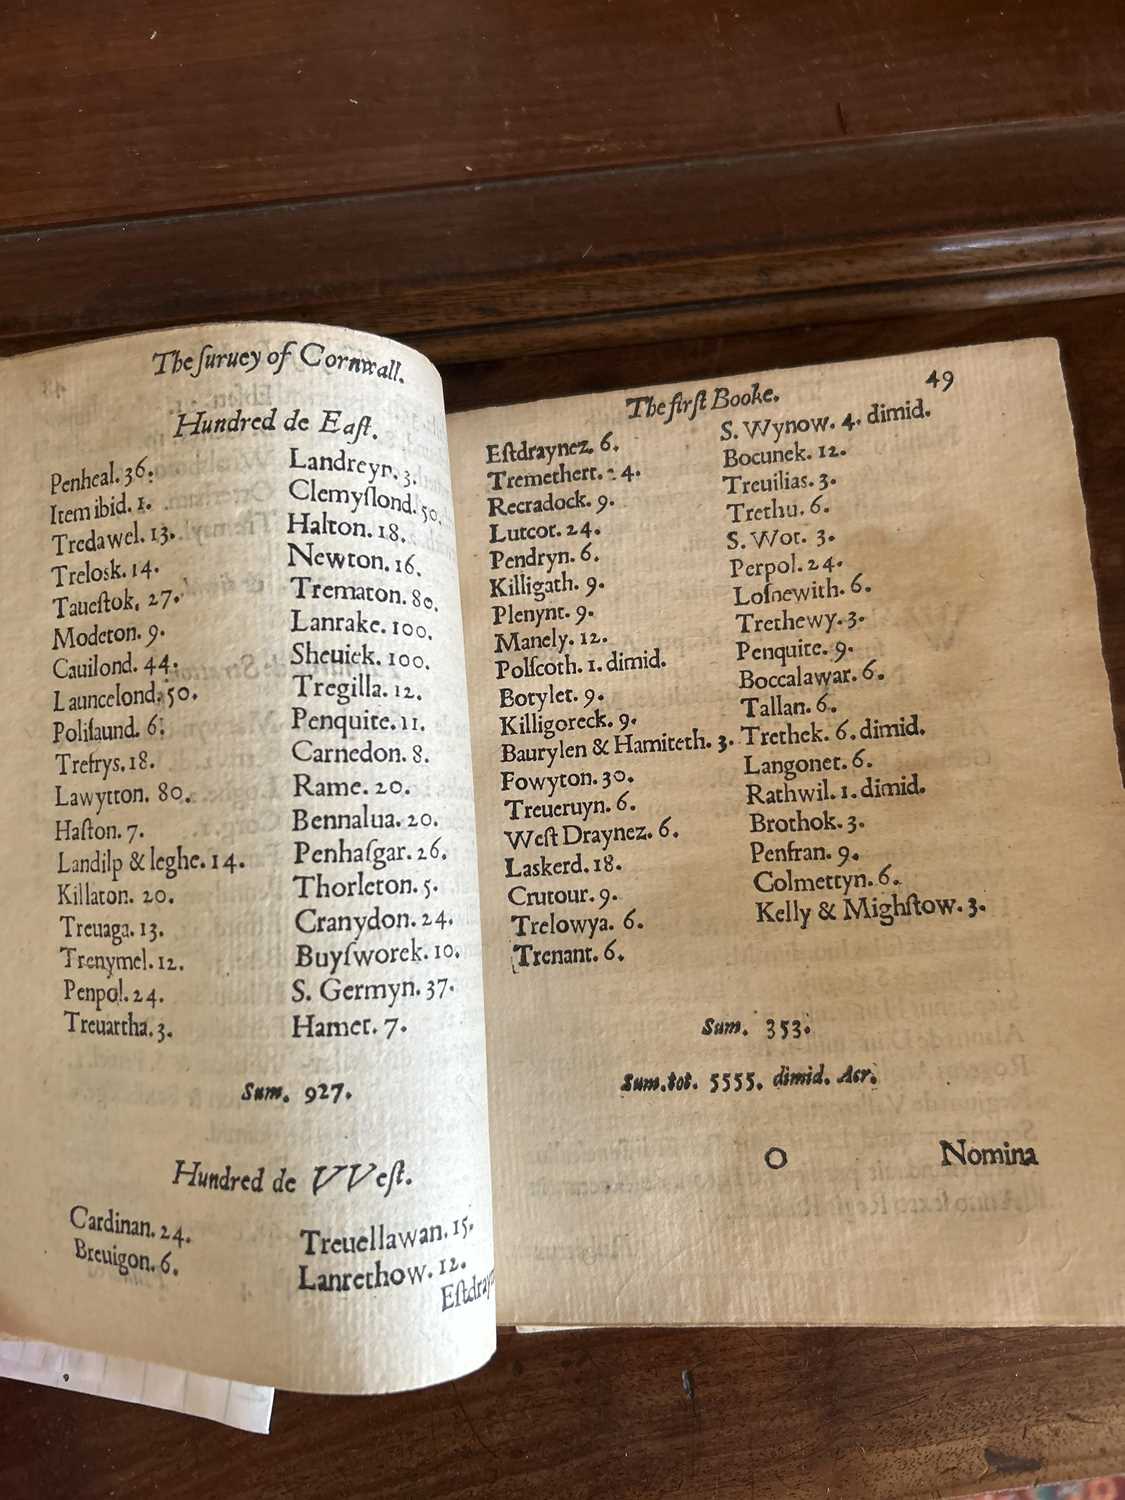 The ſuruey of Cornwall.
Hundred de Eaſt.
Penheal. 36.
Item ibid. 1.
Tredawel. 13.
Trelosk. 14.
Taueſtok. 27.
Modeton. 9.
Cauilond. 44.
Launcelond. 50.
Poliſaund. 6.
Trefrys. 18.
Lawytton. 80.
Haſton. 7.
Landilp & leghe. 14.
Killaton. 20.
Treuaga. 13.
Trenymel. 12.
Penpol. 24.
Treuartha. 3.
Landreyn. 3.
Clemyſlond. 50.
Halton. 18.
Newton. 16.
Trematon. 80.
Lanrake. 100.
Sheuiek. 100.
Tregilla. 12.
Penquite. 11.
Carnedon. 8.
Rame. 20.
Bennalua. 20.
Penhaſgar. 26.
Thorleton. 5.
Cranydon. 24.
Buyſworek. 10.
S. Germyn. 37.
Hamet. 7.
Sum. 927.
Hundred de VVeſt.
Cardinan. 24.
Breuigon. 6.
Treuellawan. 15.
Lanrethow. 12.
Eſtdray
The firſt Booke.
49
Eſtdraynez. 6.
Tremethert. 4.
Recradock. 9.
Lutcot. 24.
Pendryn. 6.
Killigath. 9.
Plenynt. 9.
Manely. 12.
Polſcoth. 1. dimid.
Botylet. 9.
Killigoreck. 9.
Baurylen & Hamiteth. 3.
Fowyton. 30.
Treueruyn. 6.
Weſt Draynez. 6.
Laskerd. 18.
Crutour. 9.
Trelowya. 6.
Trenant. 6.
S. Wynow. 4. dimid.
Bocunek. 12.
Treuilias. 3.
Trethu. 6.
S. Wot. 3.
Perpol. 24.
Loſnewith. 6.
Trethewy. 3.
Penquite. 9.
Boccalawar. 6.
Tallan. 6.
Trethek. 6. dimid.
Langonet. 6.
Rathwil. 1. dimid.
Brothok. 3.
Penfran. 9.
Colmettyn. 6.
Kelly & Mighſtow. 3.
Sum. 353.
Sum. tot. 5555. dimid. Acr.
O
Nomina